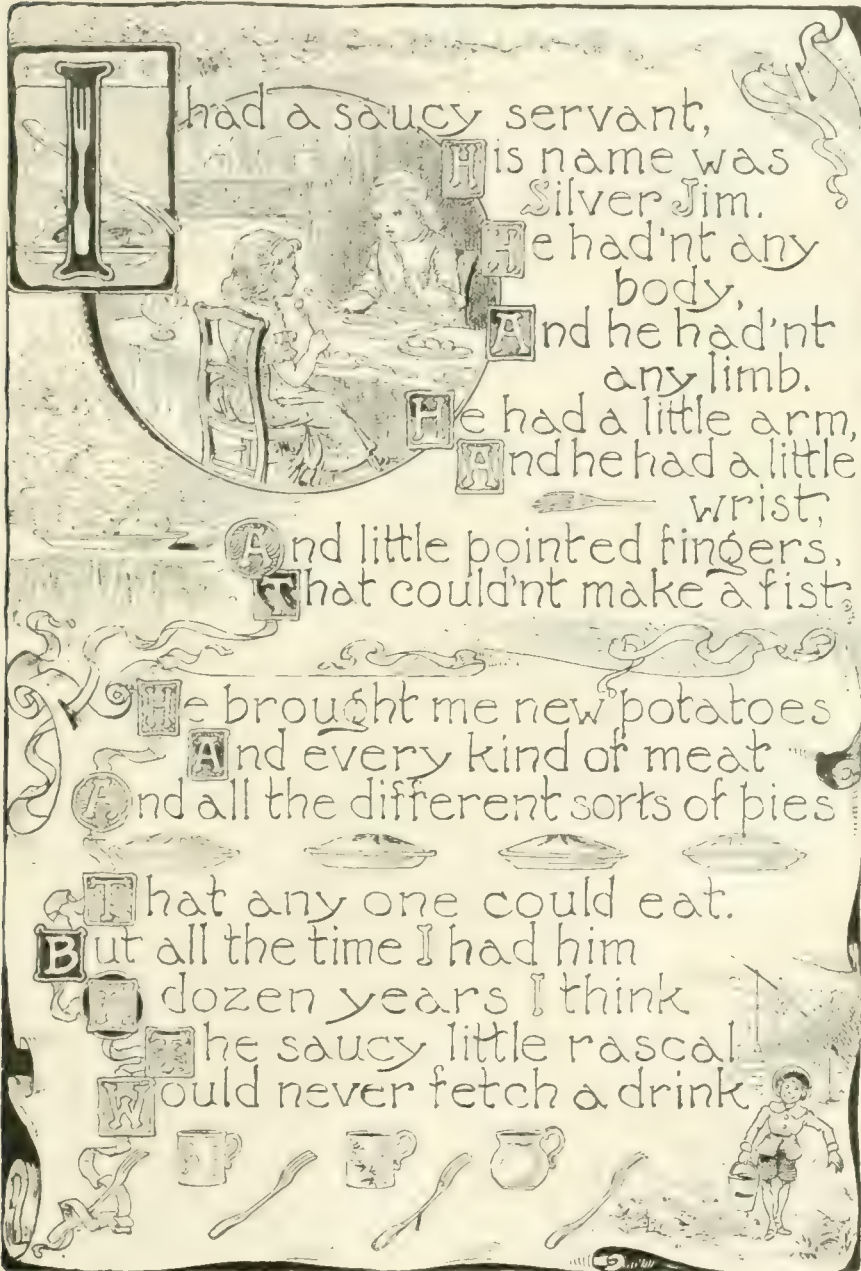 I had a saucy servant,
His name was
Silver Jim.
He had'nt any
body,
And he had'nt
any limb.
He had a little arm,
And he had a little
wrist,
And little pointed fingers,
That could'nt make a fist.
He brought me new potatoes
And every kind of meat
And all the different sorts of pies
That any one could eat.
But all the time I had him
A dozen years I think
The saucy little rascal
Would never fetch a drink